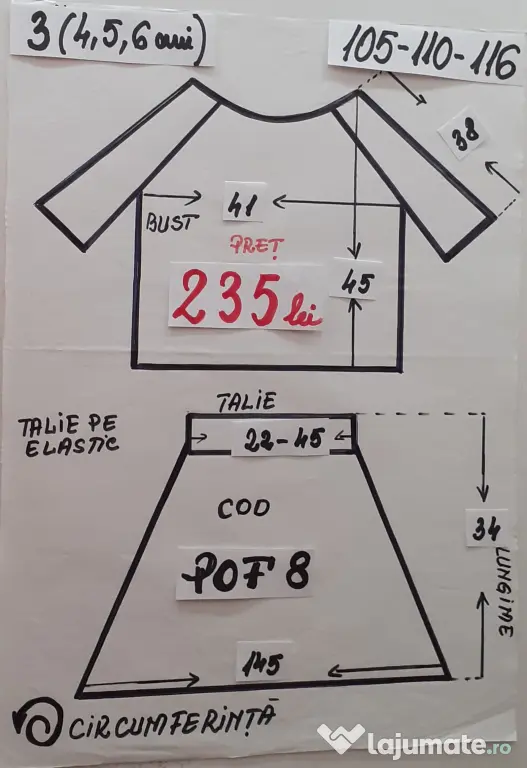 3 (4,5,6 ani)
105-110-116
38
41
BUST
PREȚ
235 lei
45
TALIE
TALIE PE
ELASTIC
22-45
COD
POF 8
34
LUNGIME
145
CIRCUMFERINȚĂ
lajumate.ro